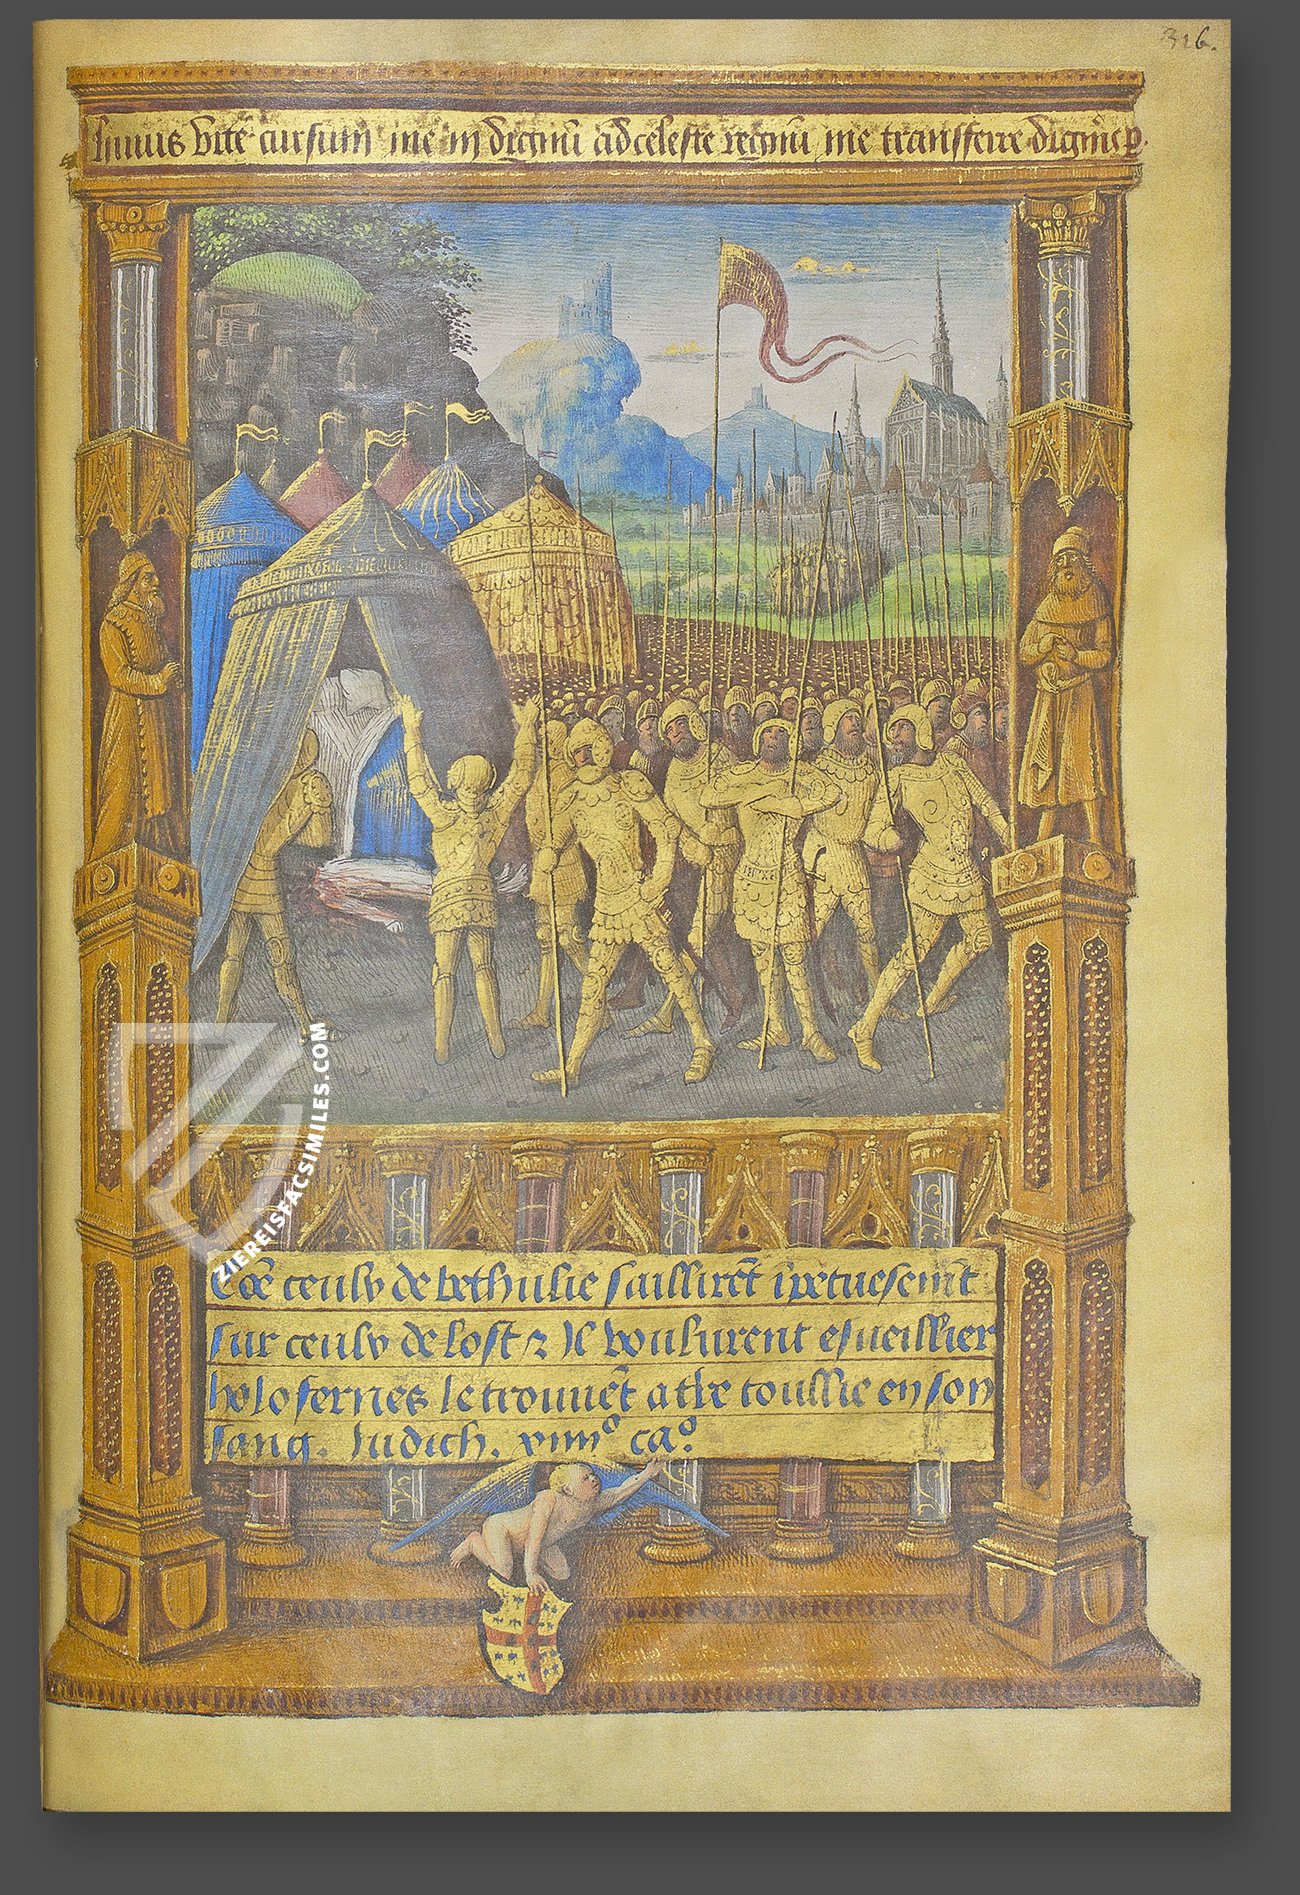 326.
huius vite cursum me indignū ad celeste regnū me transferre dignēp.
Cōe ceulx de bethulie saillirēt īpetuesemēt
sur ceulx de lost ⁊ Il voulurent esueillier
holofernes le trouuēt a tře toullie en son
sang. Iudich. xiiiiº caº.
ZIEREISFACSIMILES.COM